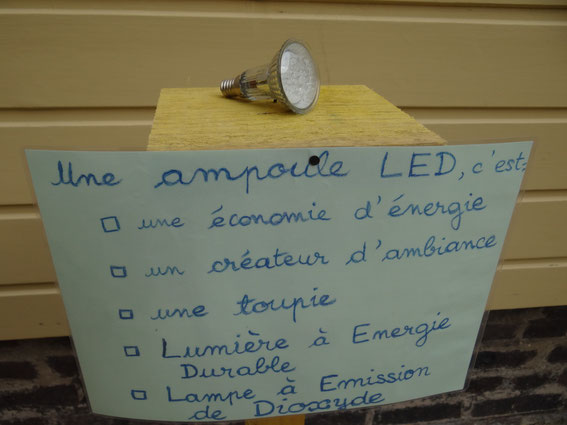 Une ampoule LED, c'est:
□ une économie d'énergie
□ un créateur d'ambiance
□ une toupie
□ Lumière à Energie
Durable
□ Lampe à Emission
de Dioxyde